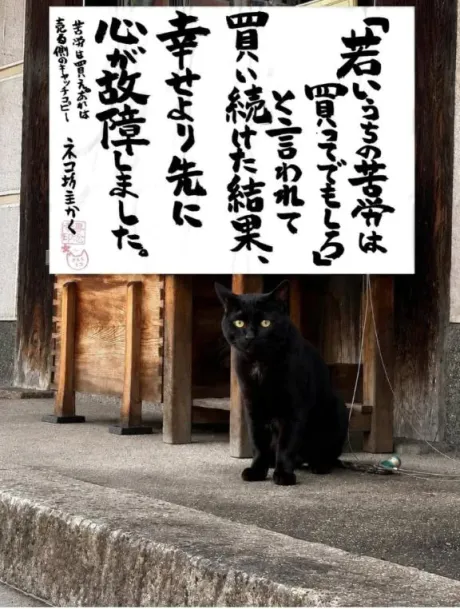 「若いうちの苦労は
買ってでもしろ」
と言われて
買い続けた結果、
幸せより先に
心が故障しました。
苦労は買えおかは
売る側のキャッチコピー
ネコ坊主かく